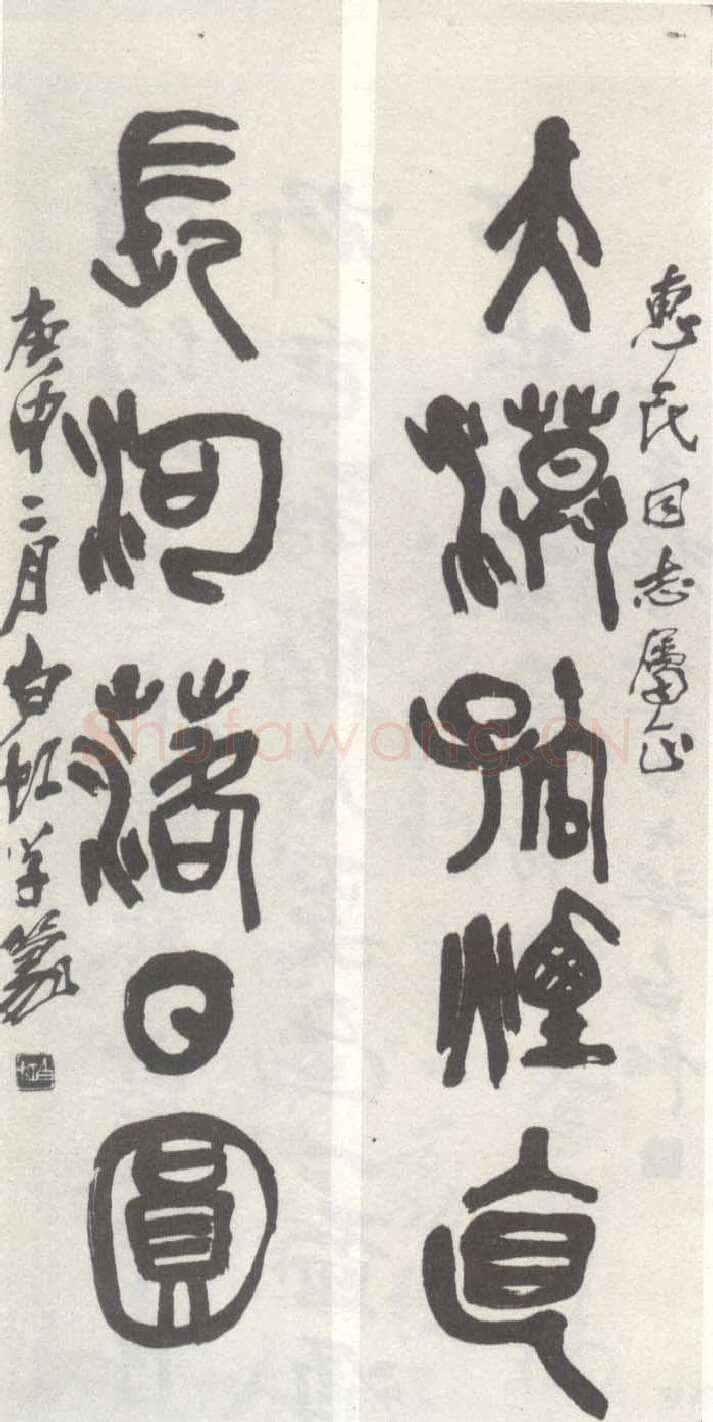 惠民同志属正
大漠孤煙直
長河落日圓
庚申二月白虹學篆
白虹
Shufawang.CN